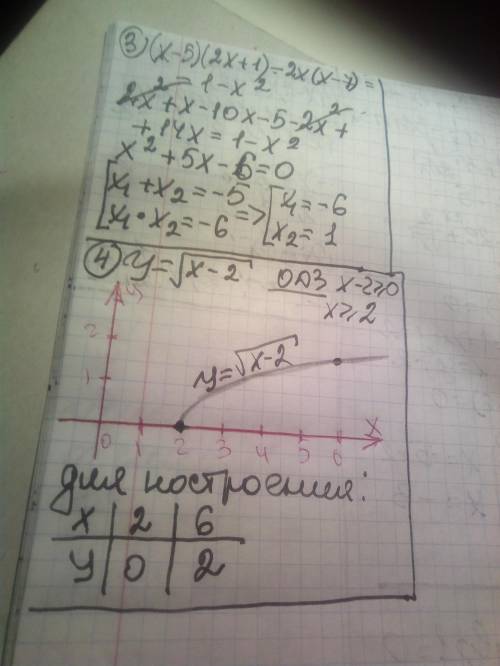 ③ (x-5)(2x+1)-2x(x-7)=
=1-x²
2x²+x-10x-5-2x²+
+14x=1-x²
x²+5x-6=0
[x₁+x₂=-5
[x₁·x₂=-6 => [x₁=-6
x₂=1
④ y=√x-2 ОДЗ x-2≥0
x≥2
y
2
1
y=√x-2
x
0 1 2 3 4 5 6
для построения:
x | 2 | 6
y | 0 | 2